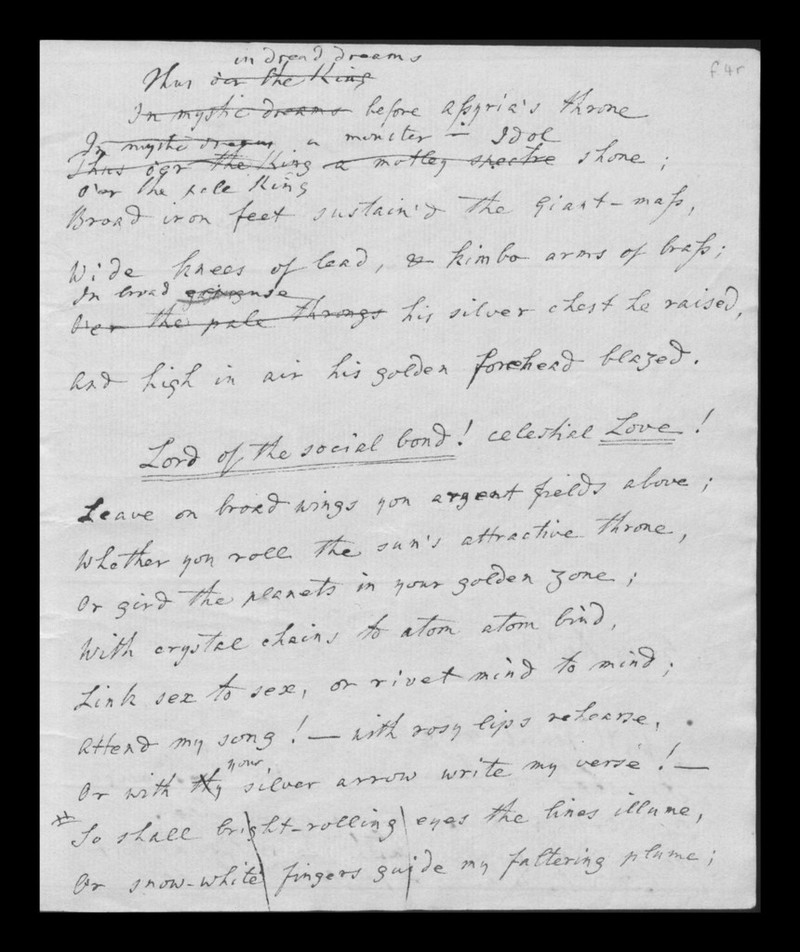 f. 4r
in dread dreams
Thus o'er the King
In mystic dreams before aſsyria's throne
In mystic dreams a monster - Idol
Thus o'er the King a motley spectre shone ;
O'er the pale King
Broad iron feet sustain'd the giant-maſs,
Wide knees of lead, & kimbo arms of braſs ;
In broad
O'er the pale throngs his silver chest he raised,
And high in air his golden forehead blazed.
Lord of the social bond ! celestial Love !
Leave on broad wings yon argent fields above ;
Whether you roll the sun's attractive throne,
Or gird the planets in your golden zone ;
With crystal chains to atom atom bind,
Link sex to sex, or rivet mind to mind ;
Attend my song ! — with rosy lips rehearse,
your
Or with thy silver arrow write my verse ! —
So shall bright-rolling eyes the lines illume,
Or snow-white fingers guide my faltering plume ;